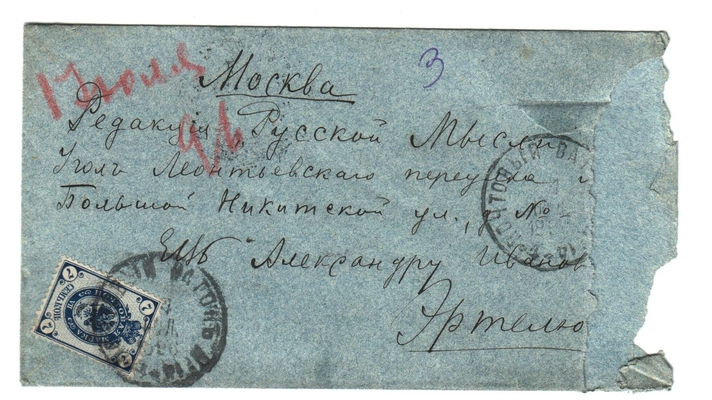 1 Июля
96
3
Москва
Редакція „Русской Мысли
Уголъ Леонтьевскаго переулка и
Большой Никитской ул., д. №
ЕЩБ Александру Иванов
Эртелю
ПОЧТОВЫЙ ВА
ВАГОНЪ
7
7
ПОЧТОВАЯ МАРКА
СЕМЬ КОП.